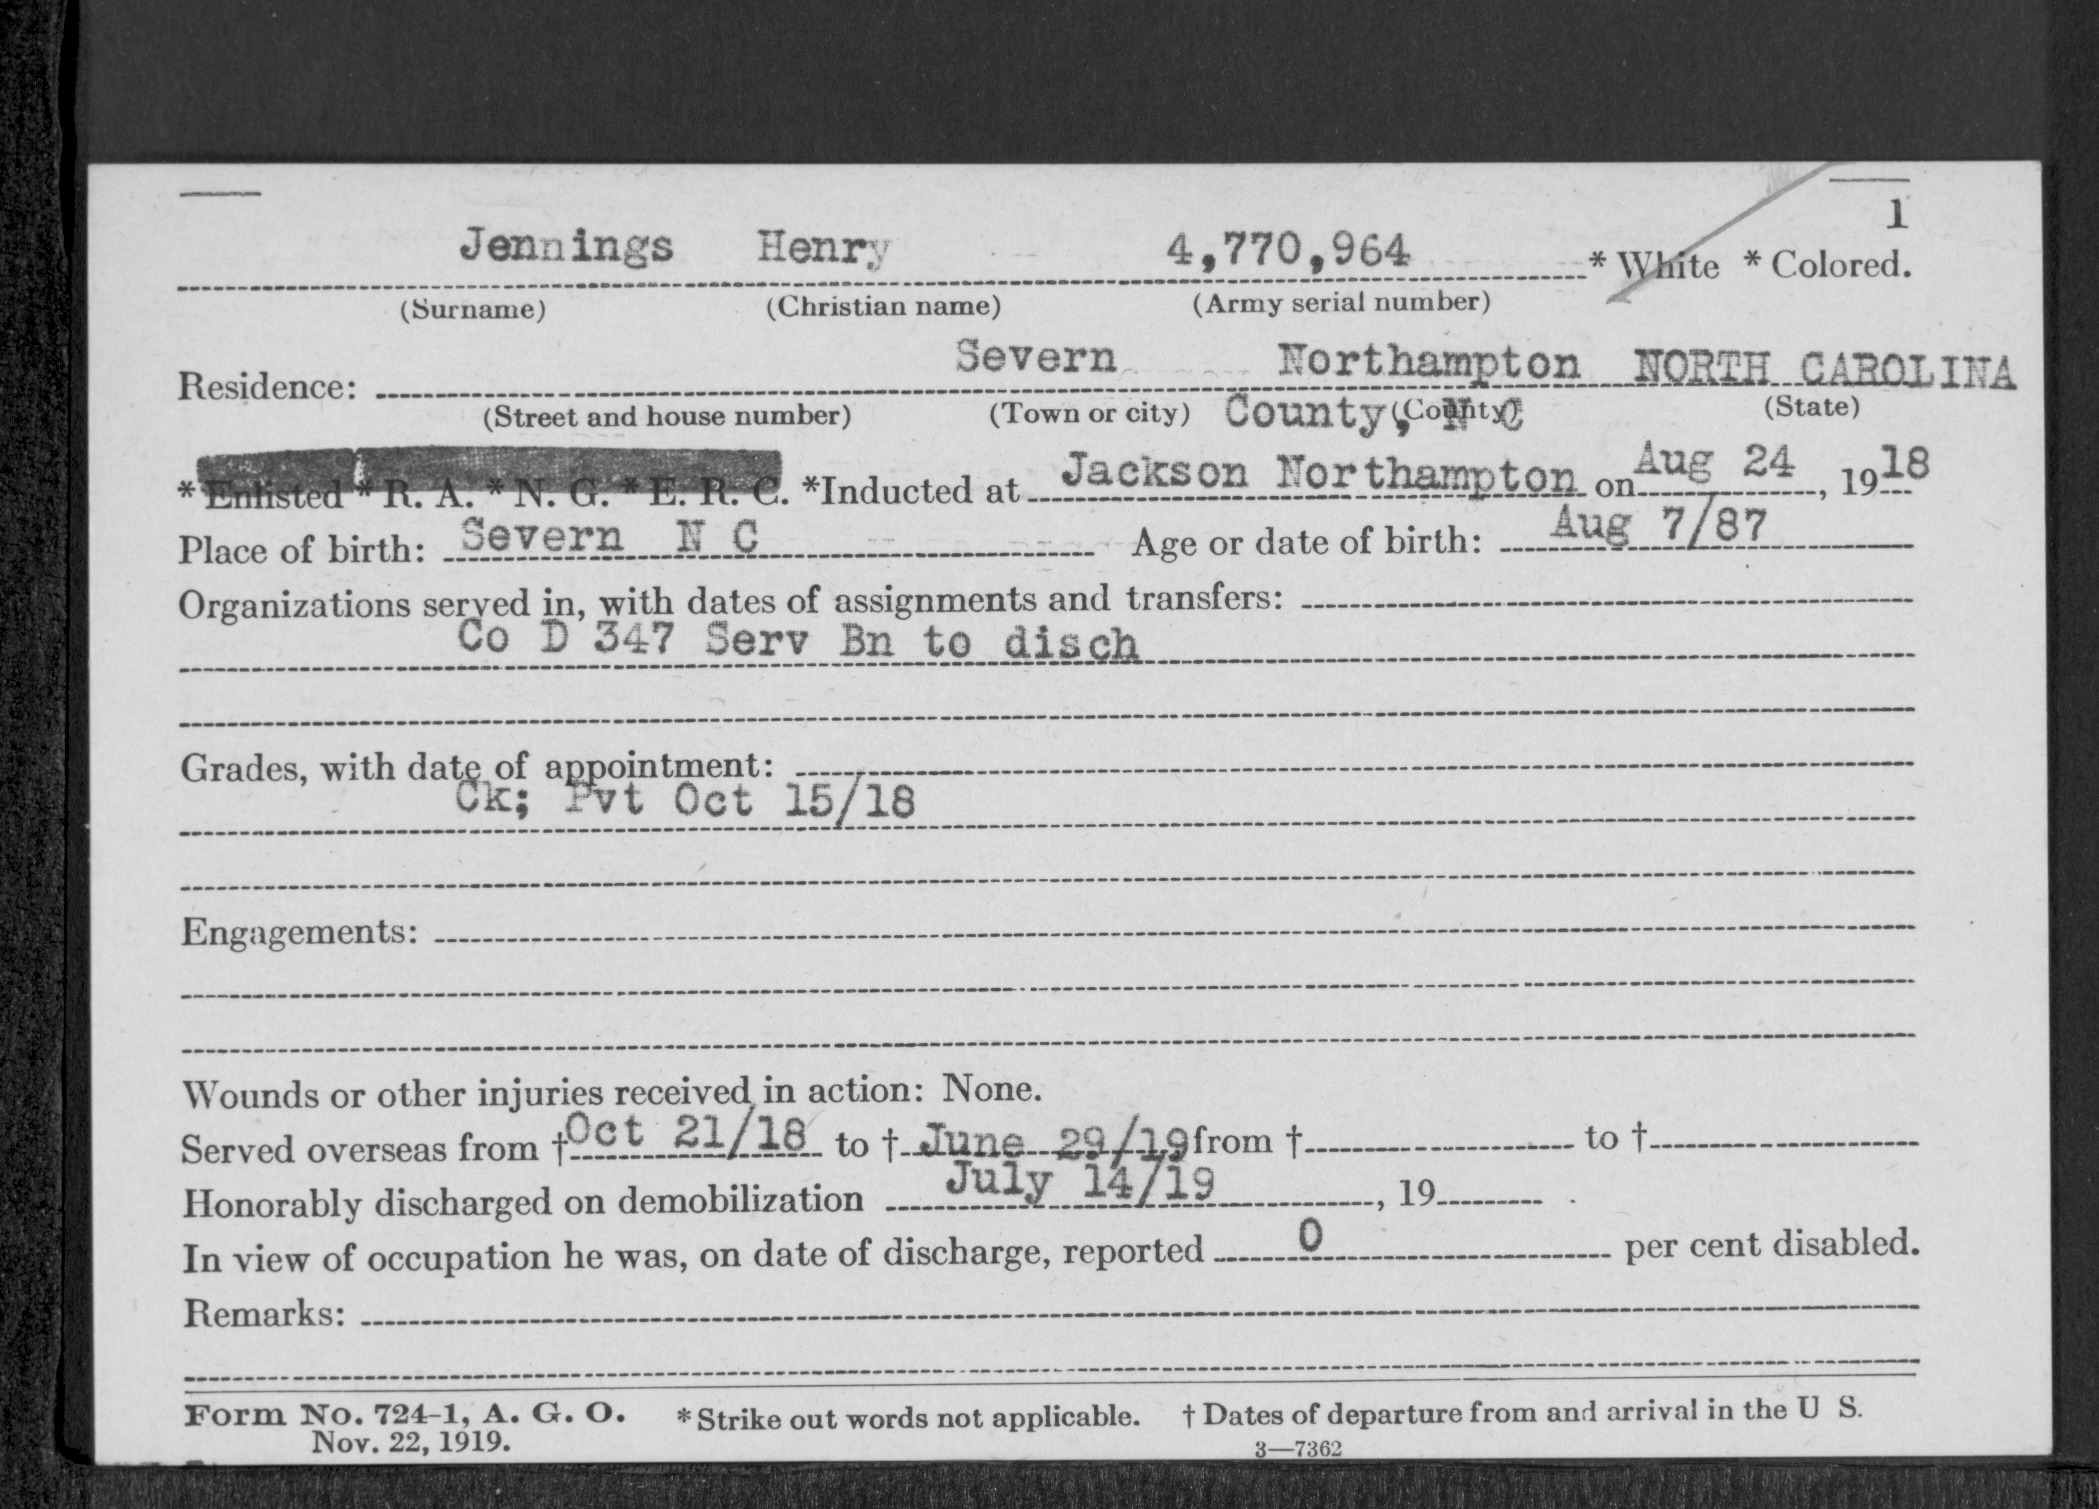 1
Jennings Henry 4,770,964 * White * Colored.
(Surname) (Christian name) (Army serial number)
Residence: Severn Northampton NORTH CAROLINA
(Street and house number) (Town or city) County, N C (County) (State)
* Enlisted * R. A. * N. G. * E. R. C. *Inducted at Jackson Northampton on Aug 24, 1918
Place of birth: Severn N C Age or date of birth: Aug 7/87
Organizations served in, with dates of assignments and transfers:
Co D 347 Serv Bn to disch
Grades, with date of appointment:
Ck; Pvt Oct 15/18
Engagements:
Wounds or other injuries received in action: None.
Served overseas from † Oct 21/18 to † June 29/19 from † to †
Honorably discharged on demobilization July 14/19, 19
In view of occupation he was, on date of discharge, reported 0 per cent disabled.
Remarks:
Form No. 724-1, A. G. O. *Strike out words not applicable. † Dates of departure from and arrival in the U S.
Nov. 22, 1919. 3—7362